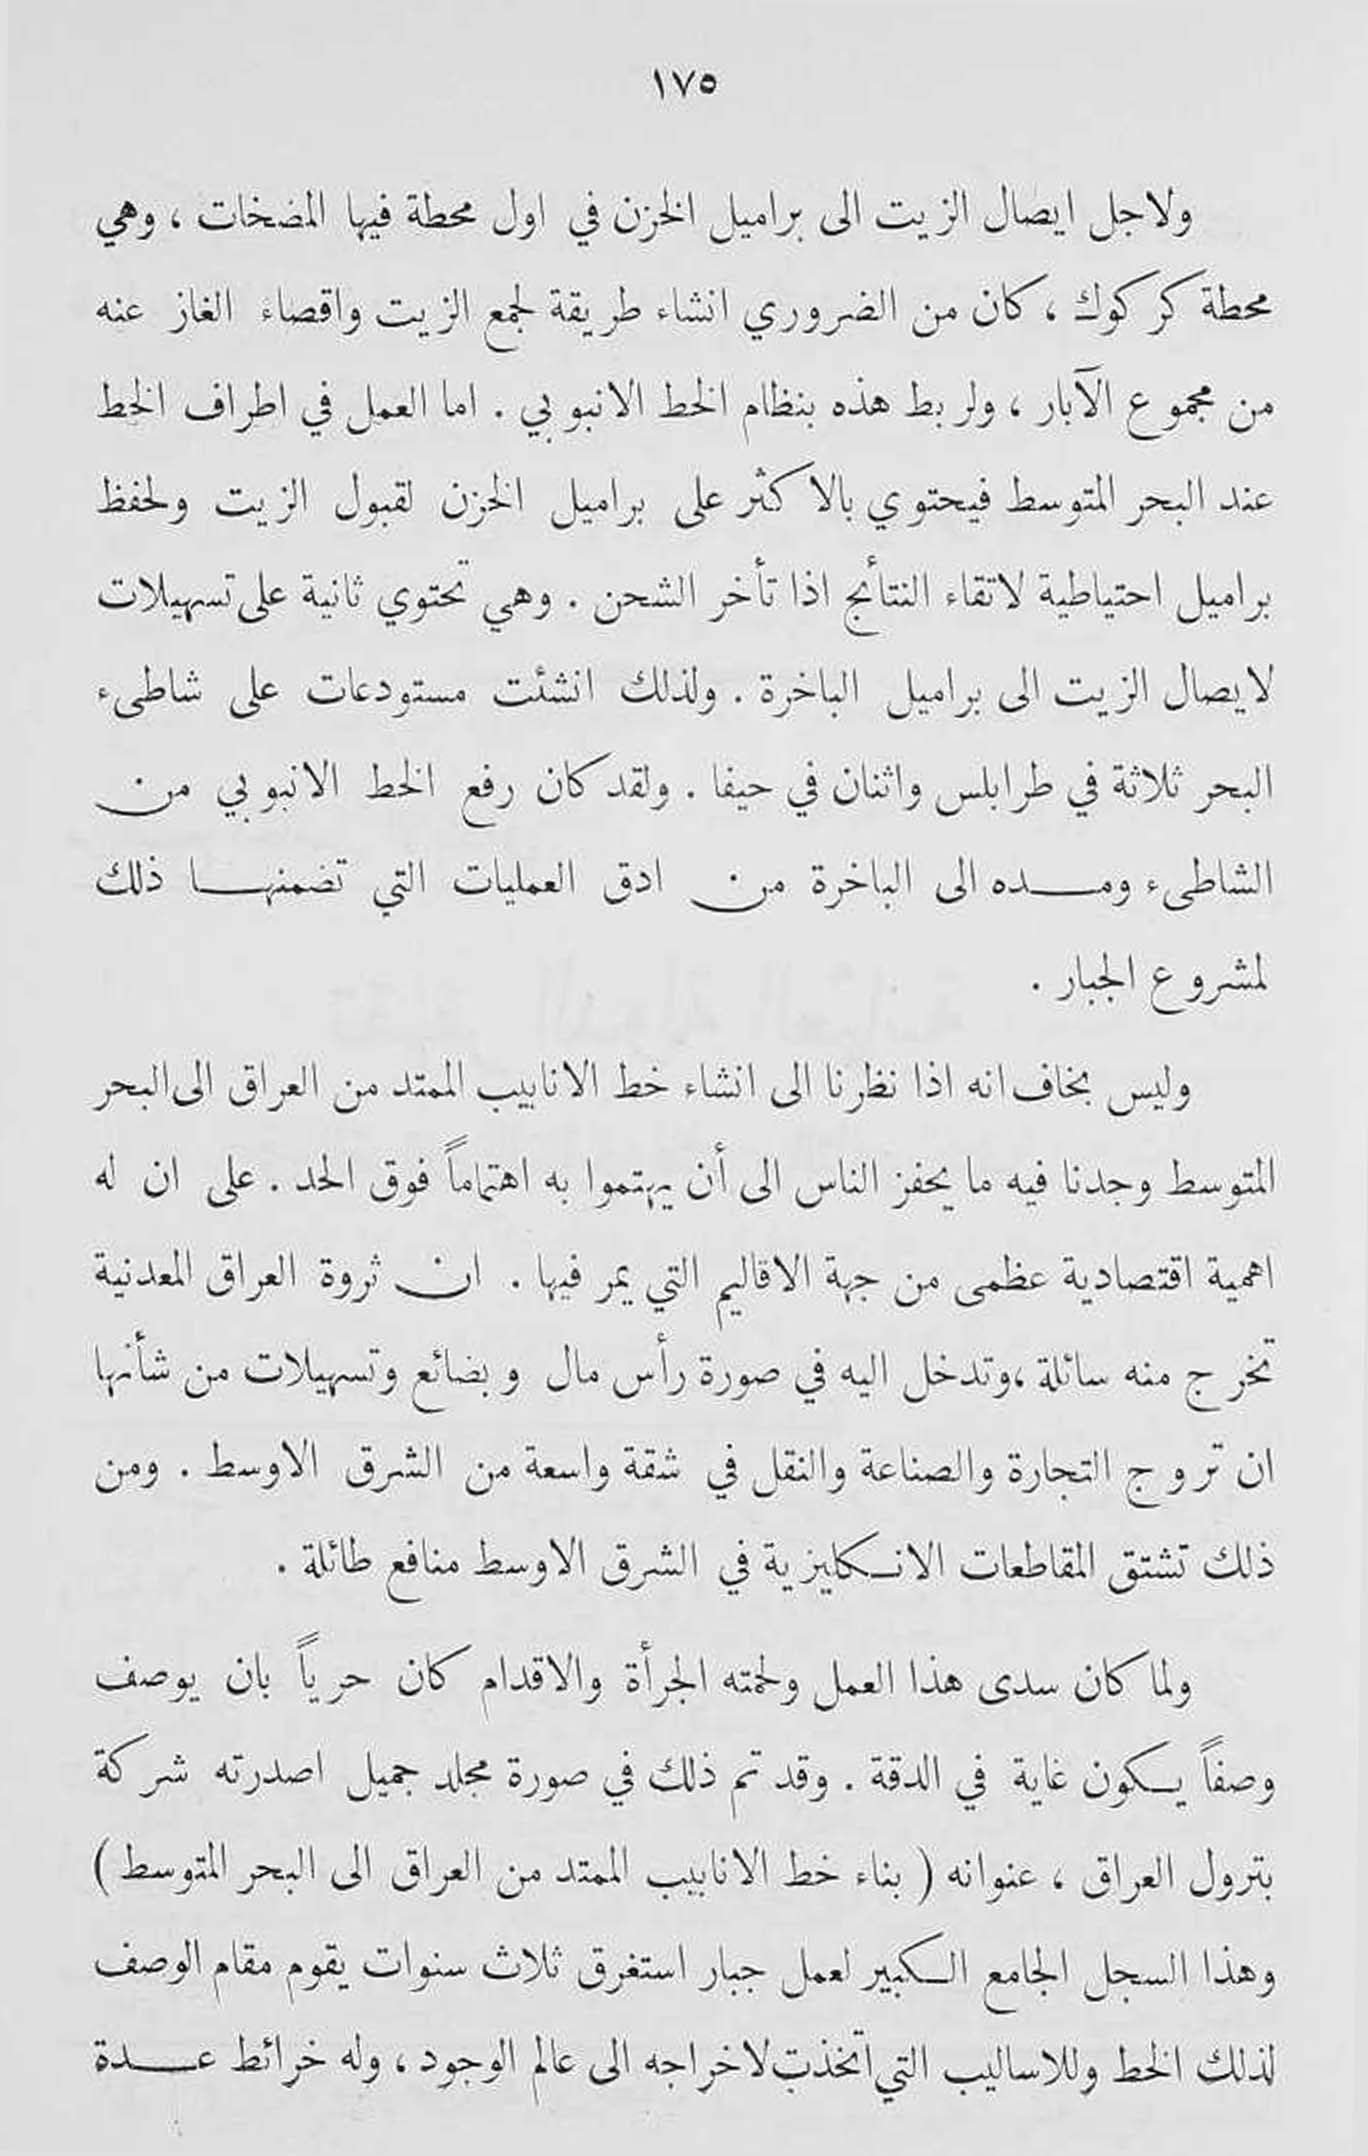 ١٧٥
ولاجل ايصال الزيت الى براميل الخزن في اول محطة فيها المضخات ، وهي
محطة كركوك ، كان من الضروري انشاء طريقة لجمع الزيت واقصاء الغاز عنه
من مجموع الآبار ، ولربط هذه بنظام الخط الانبوبي . اما العمل في اطراف الخط
عند البحر المتوسط فيحتوي بالاكثر على براميل الخزن لقبول الزيت ولحفظ
براميل احتياطية لاتقاء النتأئج اذا تأخر الشحن . وهي تحتوي ثانية على تسهيلات
لايصال الزيت الى براميل الباخرة . ولذلك انشئت مستودعات على شاطىء
البحر ثلاثة في طرابلس واثنان في حيفا . ولقد كان رفع الخط الانبوبي من
الشاطىء ومـــده الى الباخرة من ادق العمليات التي تضمنهـــا ذلك
لمشروع الجبار .
وليس بخاف انه اذا نظرنا الى انشاء خط الانابيب الممتد من العراق الى البحر
المتوسط وجدنا فيه ما يحفز الناس الى أن يهتموا به اهتماماً فوق الحد . على ان له
اهمية اقتصادية عظمى من جهة الاقاليم التي يمر فيها . ان ثروة العراق المعدنية
تخرج منه سائلة ،وتدخل اليه في صورة رأس مال وبضائع وتسهيلات من شأنها
ان تروج التجارة والصناعة والنقل في شقة واسعة من الشرق الاوسط . ومن
ذلك تشتق المقاطعات الانـكليزية في الشرق الاوسط منافع طائلة .
ولما كان سدى هذا العمل ولحمته الجرأة والاقدام كان حرياً بان يوصف
وصفاً يـكون غاية في الدقة . وقد تم ذلك في صورة مجلد جميل اصدرته شركة
بترول العراق ، عنوانه ( بناء خط الانابيب الممتد من العراق الى البحر المتوسط )
وهذا السجل الجامع الـكبير لعمل جبار استغرق ثلاث سنوات يقوم مقام الوصف
لذلك الخط وللاساليب التي اتخذت لاخراجه الى عالم الوجود ، وله خرائط عـــدة